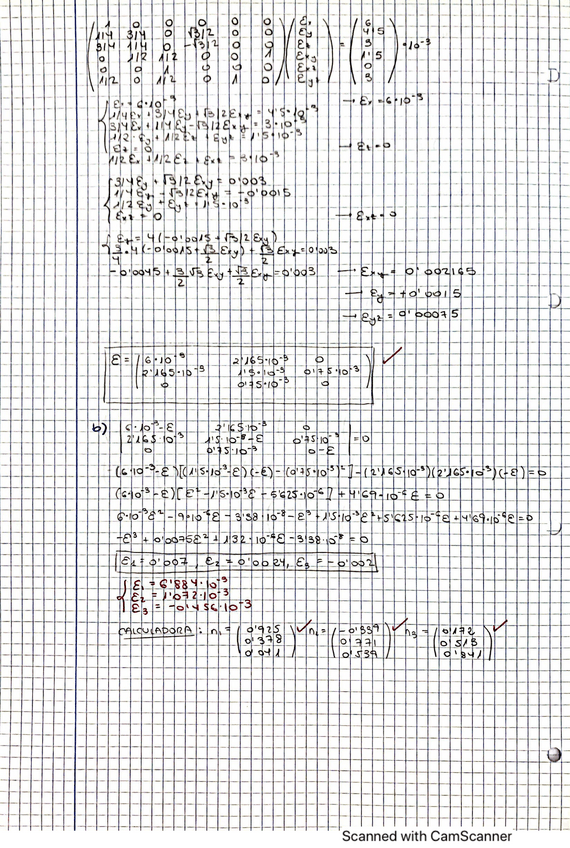 ( 1 0 0 0 0 0 ) ( εx ) ( 6 )
( 1/4 3/4 0 √3/2 0 0 ) ( εy ) ( 4'5 )
( 3/4 1/4 0 -√3/2 0 0 ) ( εz ) = ( 3 ) ·10⁻³
( 0 1/2 1/2 0 0 1 ) ( εxy ) ( 1'5 )
( 0 0 1 0 0 0 ) ( εxz ) ( 0 )
( 1/2 0 1/2 0 1 0 ) ( εyz ) ( 3 )
εx = 6·10⁻³ → εx = 6·10⁻³
1/4 εx + 3/4 εy + √3/2 εxy = 4'5·10⁻³
3/4 εx + 1/4 εy - √3/2 εxy = 3·10⁻³
1/2 · εy + 1/2 εz + εyz = 1'5·10⁻³
εz = 0 → εz = 0
1/2 εx + 1/2 εz + εxz = 3·10⁻³
3/4 εy + √3/2 εxy = 0'003
1/4 εy - √3/2 εxy = -0'0015
1/2 εy + εyz = 1'5·10⁻³
εxz = 0 → εxz = 0
εy = 4(-0'0015 + √3/2 εxy)
3/4 · 4(-0'0015 + √3/2 εxy) + √3/2 εxy = 0'003
-0'0045 + 3/2 √3 εxy + √3/2 εxy = 0'003 → εxy = 0'002165
→ εy = +0'0015
→ εyz = 0'00075
ε = ( 6·10⁻³ 2'165·10⁻³ 0 ) ✓
( 2'165·10⁻³ 1'5·10⁻³ 0'75·10⁻³ )
( 0 0'75·10⁻³ 0 )
b) | 6·10⁻³-ε 2'165·10⁻³ 0 |
| 2'165·10⁻³ 1'5·10⁻³-ε 0'75·10⁻³ | = 0
| 0 0'75·10⁻³ 0-ε |
(6·10⁻³-ε)[(1'5·10⁻³-ε)(-ε) - (0'75·10⁻³)²] - (2'165·10⁻³)(2'165·10⁻³)(-ε) = 0
(6·10⁻³-ε)[ε² - 1'5·10⁻³ε - 5'625·10⁻⁶] + 4'69·10⁻⁶ε = 0
6·10⁻³ε² - 9·10⁻⁶ε - 3'38·10⁻⁸ - ε³ + 1'5·10⁻³ε² + 5'625·10⁻⁶ε + 4'69·10⁻⁶ε = 0
-ε³ + 0'0075ε² + 1'32·10⁻⁶ε - 3'38·10⁻⁸ = 0
ε1 = 0'007, ε2 = 0'0024, ε3 = -0'002
ε1 = 6'884·10⁻³
ε2 = 1'072·10⁻³
ε3 = -0'456·10⁻³
CALCULADORA: n1 = ( 0'925 ) ✓ n2 = ( -0'339 ) ✓ n3 = ( 0'172 ) ✓
( 0'378 ) ( 0'771 ) ( 0'513 )
( 0'041 ) ( 0'539 ) ( 0'841 )
Scanned with CamScanner